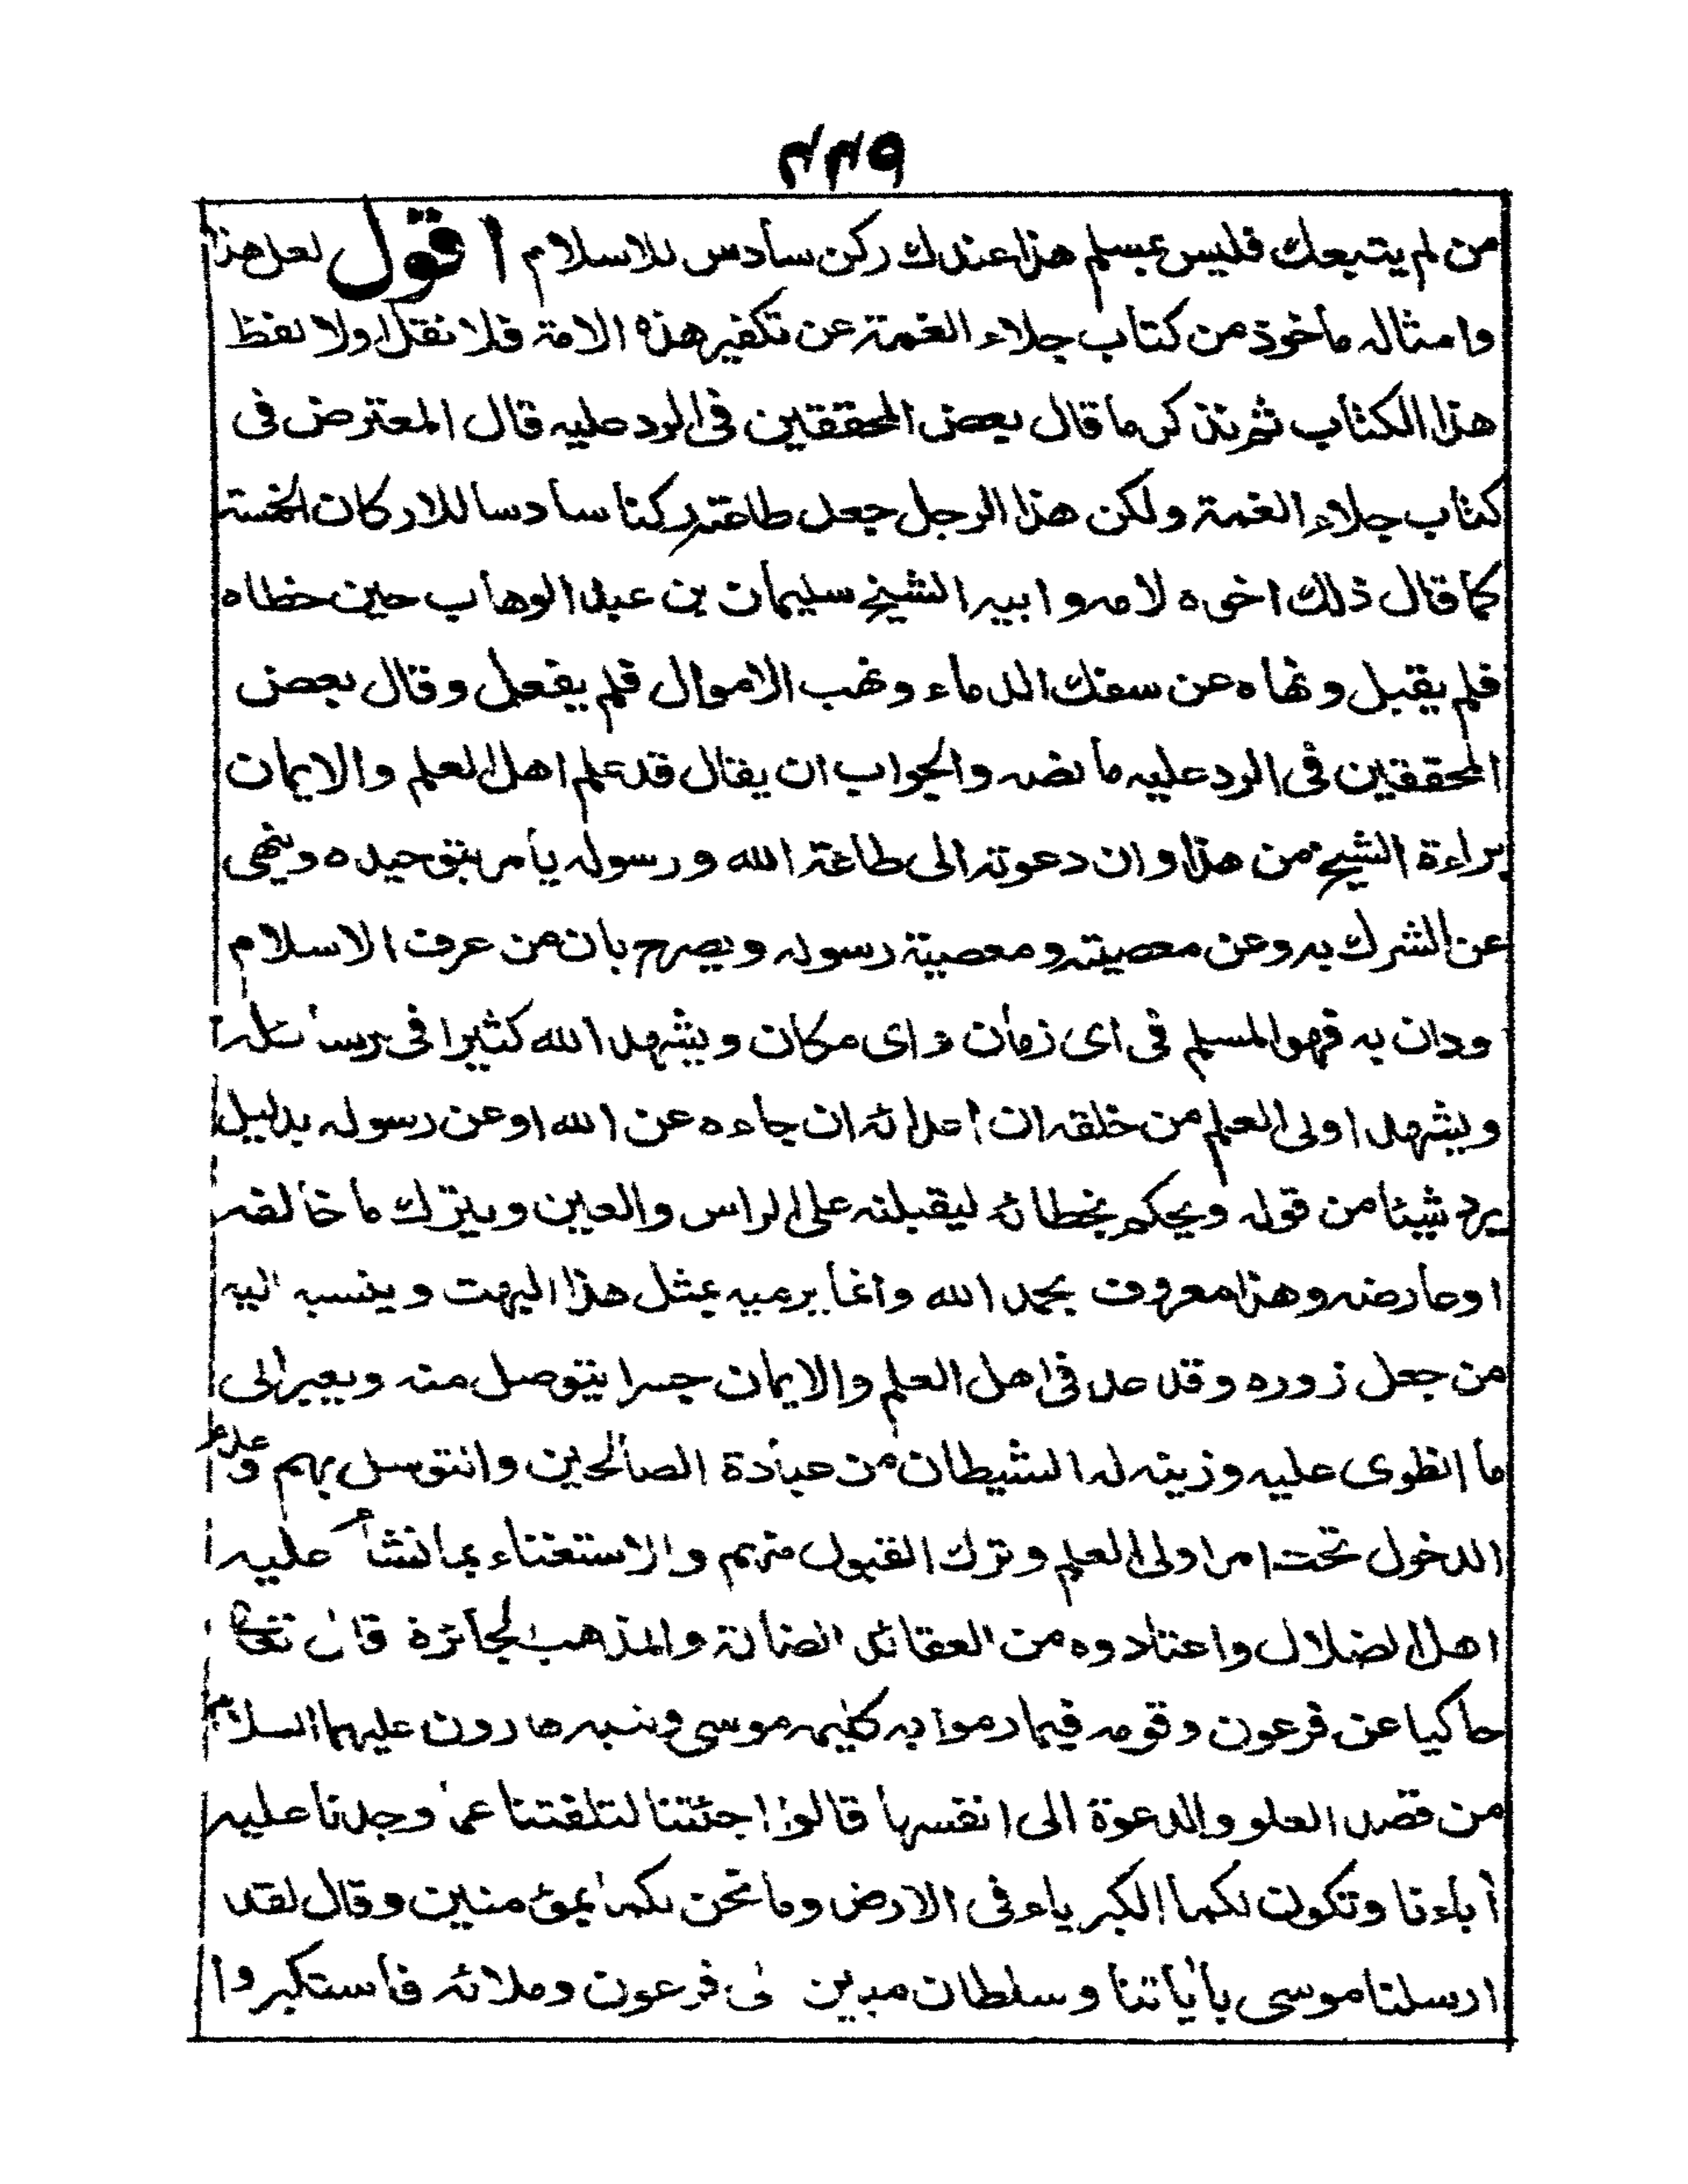 ٤٤٩
من لم يتبعك فليس بمسلم هذا عندك ركن سادس للاسلام اقول لعل هذا
وامثاله ماخوذ من كتاب جلاء الغمة عن تكفير هذه الامة فلا نقل اولا لفظ
هذا الكتاب ثم نذكر ما قال بعض المحققين فى الرد عليه قال المعترض فى
كتاب جلاء الغمة ولكن هذا الرجل جعل طاعته ركنا سادسا للاركان الخمسة
كما قال ذلك اخوه لامه وابيه الشيخ سليمان بن عبد الوهاب حين خطاه
فلم يقبل ونهاه عن سفك الدماء ونهب الاموال فلم يفعل وقال بعض
المحققين فى الرد عليه ما نصه والجواب ان يقال قد علم اهل العلم والايمان
براءة الشيخ من هذا وان دعوته الى طاعة الله ورسوله يأمر بتوحيده وينهى
عن الشرك به وعن معصيته ومعصية رسوله ويصرح بان من عرف الاسلام
ودان به فهو المسلم فى اى زمان و اى مكان ويشهد الله كثيرا فى رسائله
ويشهد اولى العلم من خلقه ان اعدائه ان جاءه عن الله او عن رسوله بدليل
يرد شيئا من قوله ويحكم بخطائه ليقبلنه على الراس والعين ويترك ما خالفه
او عارضه وهذا معروف بحمد الله وانما يرميه بمثل هذا البهت وينسبه اليه
من جعل زوره وقدحه فى اهل العلم والايمان جسرا يتوصل منه ويعبر الى
ما انطوى عليه وزينه له الشيطان من عبادة الصالحين والتوسل بهم وعدم
الدخول تحت امر اولى العلم وترك القبول منهم والاستغناء بما نشأ عليه
اهل الضلال واعتادوه من العقائد الضالة والمذهب الجائرة قال تعالى
حاكيا عن فرعون وقومه فيما رموا به كليمه موسى ونبيه هارون عليهما السلام
من قصد العلو والدعوة الى انفسها قالوا اجئتنا لتلفتنا عما وجدنا عليه
أباءنا وتكون لكما الكبرياء فى الارض وما نحن لكما بمؤمنين وقال لقد
ارسلنا موسى بأياتنا وسلطان مبين لى فرعون وملائه فاستكبروا